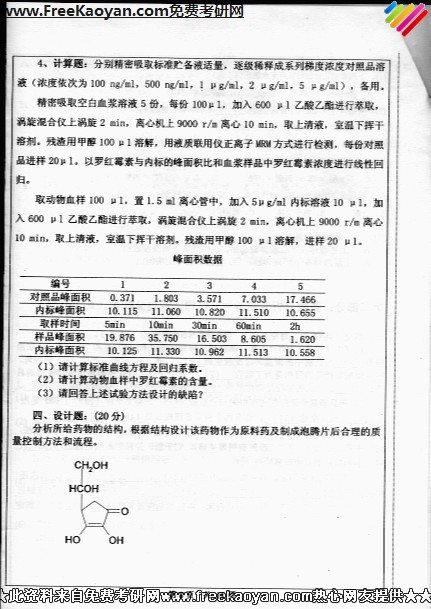 www.FreeKaoyan.com免费考研网
4、计算题：分别精密吸取标准贮备液适量，逐级稀释成系列梯度浓度对照品溶
液（浓度依次为 100 ng/ml，500 ng/ml，1 μg/ml，2 μg/ml，5 μg/ml），备用。
精密吸取空白血浆溶液 5 份，每份 100μl，加入 600 μl 乙酸乙酯进行萃取，
涡旋混合仪上涡旋 2 min，离心机上 9000 r/m 离心 10 min，取上清液，室温下挥干
溶剂。残渣用甲醇 100 μl 溶解，用液质联用仪正离子 MRM 方式进行检测，每份对照
品进样 20μl。以罗红霉素与内标的峰面积比和血浆样品中罗红霉素浓度进行线性回
归。
取动物血样 100 μl，置 1.5 ml 离心管中，加入 5μg/ml 内标溶液 10 μl，加
入 600 μl 乙酸乙酯进行萃取，涡旋混合仪上涡旋 2 min，离心机上 9000 r/m 离心
10 min，取上清液，室温下挥干溶剂。残渣用甲醇 100 μl 溶解，进样 20 μl。
峰面积数据
编号 1 2 3 4 5
对照品峰面积 0.371 1.803 3.571 7.033 17.466
内标峰面积 10.115 11.060 10.820 11.510 10.655
取样时间 5min 10min 30min 60min 2h
样品峰面积 19.876 35.750 16.503 8.605 1.620
内标峰面积 10.125 11.330 10.962 11.513 10.558
（1）请计算标准曲线方程及回归系数。
（2）请计算动物血样中罗红霉素的含量。
（3）请回答上述试验方法设计的缺陷？
四、设计题：(20 分)
分析所给药物的结构，根据结构设计该药物作为原料药及制成泡腾片后合理的质
量控制方法和流程。
CH₂OH
HCOH
O
HO OH
★此资料来自免费考研网www.freekaoyan.com热心网友提供★★